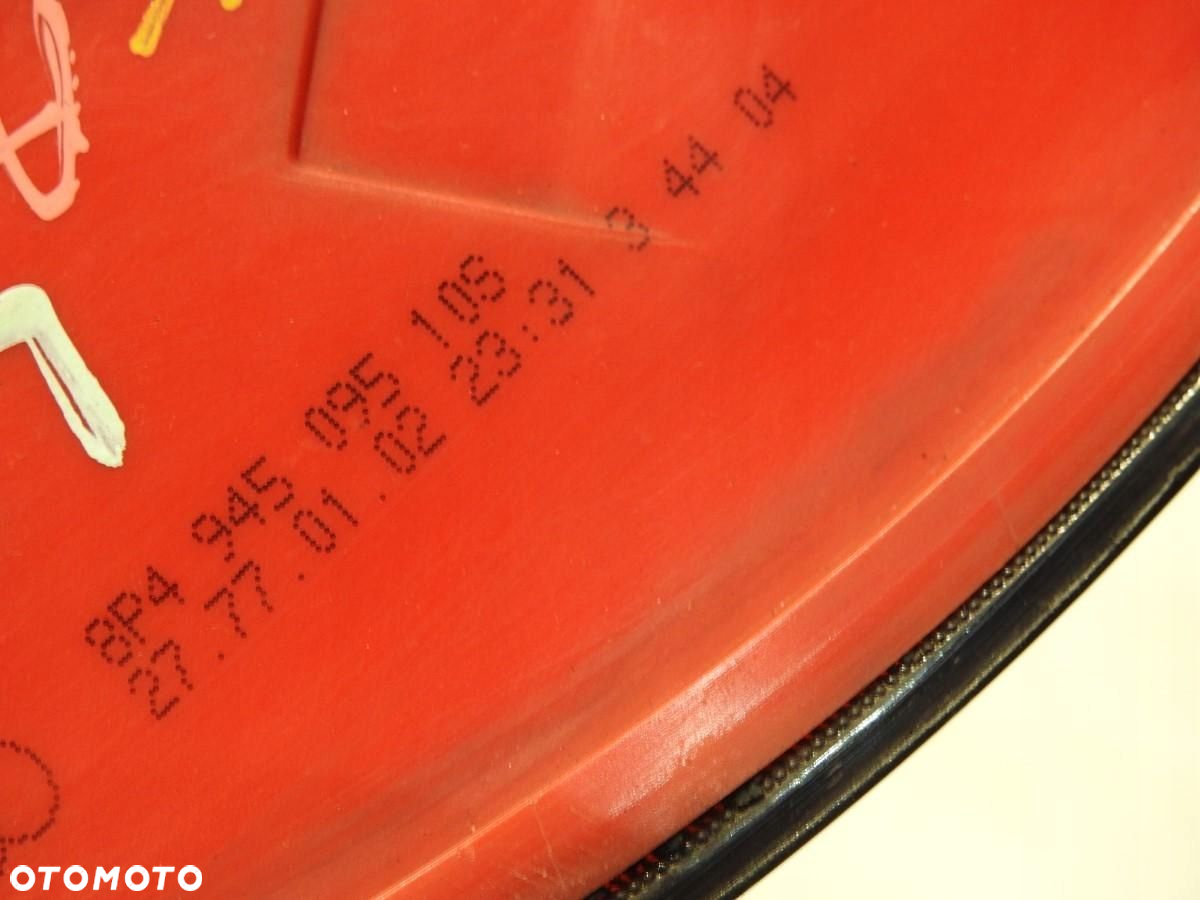 A
L
8P4 945 095 10S
27.77.01.02 23:31 3 44 04
OTOMOTO